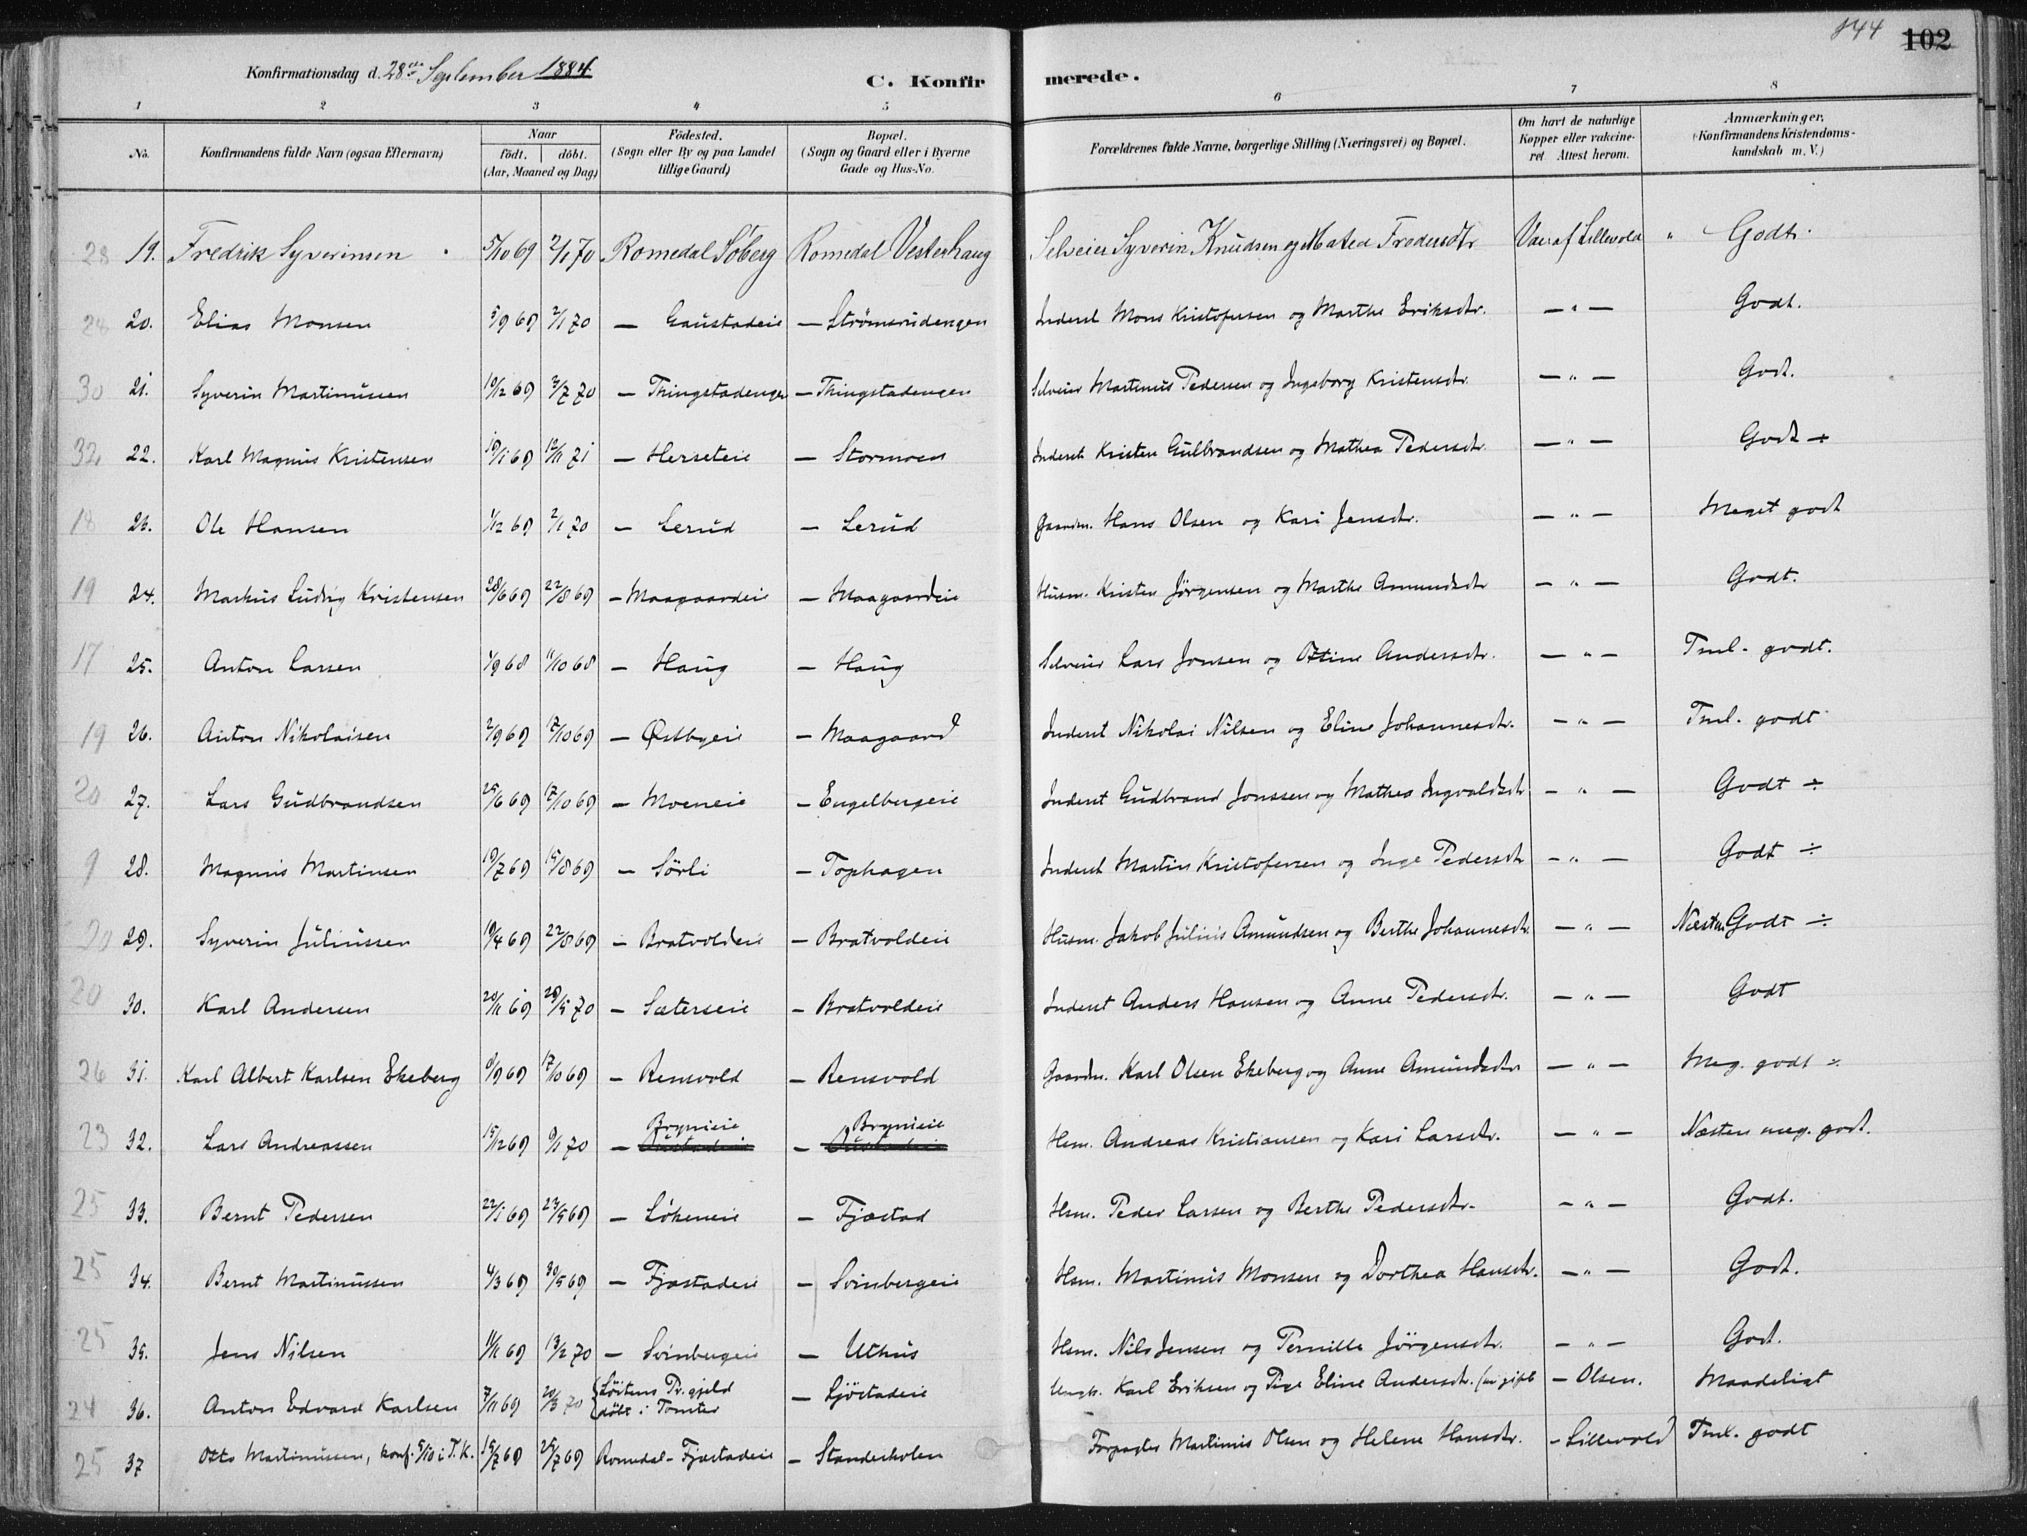 144 102
Konfirmationsdag d. 28de September 1884.
C. Konfirmerede.
1 2 3 4 5 6 7 8
No. Konfirmandens fulde Navn (ogsaa Efternavn) Naar födt. döbt. (Aar, Maaned og Dag) Födested. (Sogn eller By og paa Landet tillige Gaard) Bopæl. (Sogn og Gaard eller i Byerne Gade og Hus-No. Forældrenes fulde Navne, borgerlige Stilling (Næringsvei) og Bopæl. Om havt de naturlige Kopper eller vakcineret. Attest herom. Anmærkninger. (Konfirmandens Kristendomskundskab m. V.)
28 19. Fredrik Syverinsen 5/10 69 2/1 70 Romedal Soberg Romedal Vesterhaug Selveier Syverin Knudsen og Matea Fredersdtr Vac. af Lillevold " Godt.
20. Elias Monsen 5/9 69 2/1 70 — Gaustadeie — Strömsrudengen Inderst Mons Kristofersen og Marthe Eriksdtr. — " — Godt.
30 21. Syverin Martinussen 10/12 69 3/7 70 — Thingstadengen — Thingstadengen Selveier Martinus Pedersen og Ingeborg Kristensdtr. — " — Godt.
32 22. Karl Magnus Kristensen 19/1 69 12/11 71 — Herseteie — Stormoen Inderst Kristen Gulbrandsen og Mathea Pedersdtr. — " — Godt ÷
18 23. Ole Hansen 1/12 69 2/1 70 — Lerud — Lerud Gaardm. Hans Olsen og Kari Jensdtr. — " — Meget godt
19 24. Markus Ludvig Kristensen 28/6 69 22/8 69 — Maagaardeie — Maagaardeie Husm. Kristen Jørgensen og Marthe Amundsdtr — " — Godt.
17 25. Anton Larsen 1/9 68 11/10 68 — Haug — Haug Selveier Lars Jonsen og Ottine Andersdtr. — " — Tml. godt.
19 26. Anton Nikolaisen 2/9 69 17/10 69 — Østbyeie — Maagaard Inderst Nikolai Nilsen og Eline Johannesdtr. — " — Tml. godt
20 27. Lars Gudbrandsen 25/6 69 17/10 69 — Moeneie — Engelbergeie Inderst Gudbrand Jonssen og Mathea Ingvaldsdtr — " — Godt ÷
9 28. Magnus Martinsen 19/7 69 15/8 69 — Sörli — Tophagen Inderst Martin Kristofersen og Inge Pedersdtr — " — Godt ÷
20 29. Syverin Juliussen 19/4 69 22/8 69 — Bratvoldeie — Bratvoldeie Husm. Jakob Julius Amundsen og Berthe Johannesdtr. — " — Næsten Godt ÷
20 30. Karl Andersen 20/11 69 29/5 70 — Sæterseie — Bratvoldeie Inderst Anders Hansen og Anne Pedersdtr. — " — Godt
26 31. Karl Albert Karlsen Ekeberg 9/9 69 17/10 69 — Rensvold — Rensvold Gaardm. Karl Olsen Ekeberg og Anne Amundsdtr — " — Meg. godt ÷
23 32. Lars Andreassen 15/12 69 9/1 70 — Brynieie — Brynieie Hsm. Andreas Kristiansen og Kari Larsdtr. — " — Næsten meg. godt.
25 33. Bernt Pedersen 22/1 69 23/5 69 — Løkeneie — Fjæstad Hsm. Peder Larsen og Berthe Pedersdtr. — " — Godt.
25 34. Bernt Martinussen 4/3 69 30/5 69 — Fjæstadeie — Svinbergeie Hsm. Martinus Monsen og Dorthea Hansdtr. — " — Godt.
25 35. Jens Nilsen 11/11 69 13/2 70 — Svinbergeie — Uthus Hsm. Nils Jensen og Pernille Jörgensdtr. — " — Godt.
24 36. Anton Edvard Karlsen 7/11 69 20/3 70 Löitens Pr.gjeld döbt i Tomter — Sjöstadeie Ungk. Karl Eriksen og Pige Eline Andersdtr. (nu gift — Olsen. Maadeligt
25 37 Otto Martinussen, konf. 5/10 i T.K. 15/7 69 25/7 69 Romedal - Fjæstadeie — Standerholen Forpagter Martinus Olsen og Helene Hansdtr. — Lillevold Tml. godt